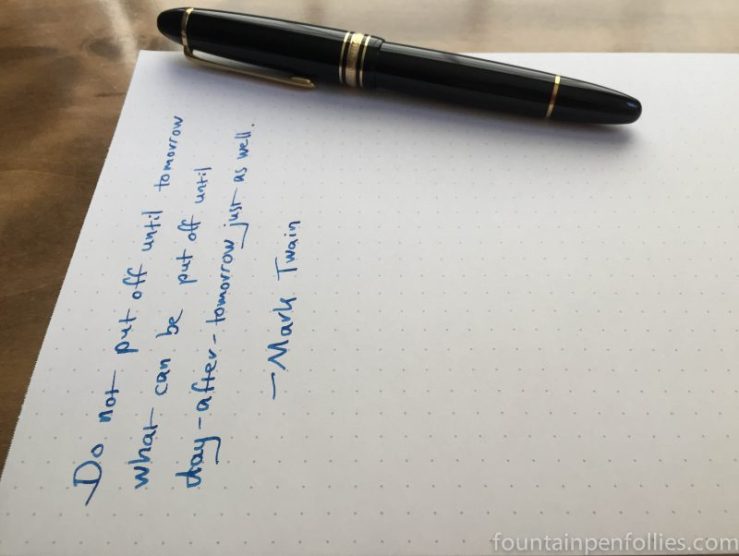 Do not put off until tomorrow
what can be put off until
day-after-tomorrow just as well.
—Mark Twain
fountainpenfollies.com